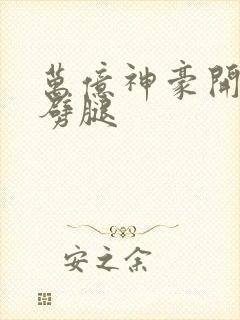 萬億神豪開
劈腿
安之余